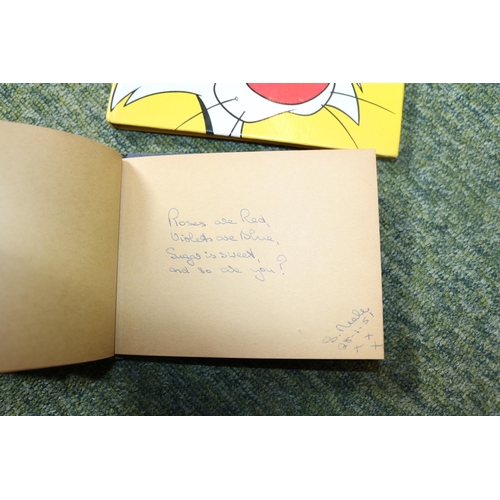 Roses are Red,
Violets are Blue,
Sugar is sweet,
and so are you?
Neale
x x
x x